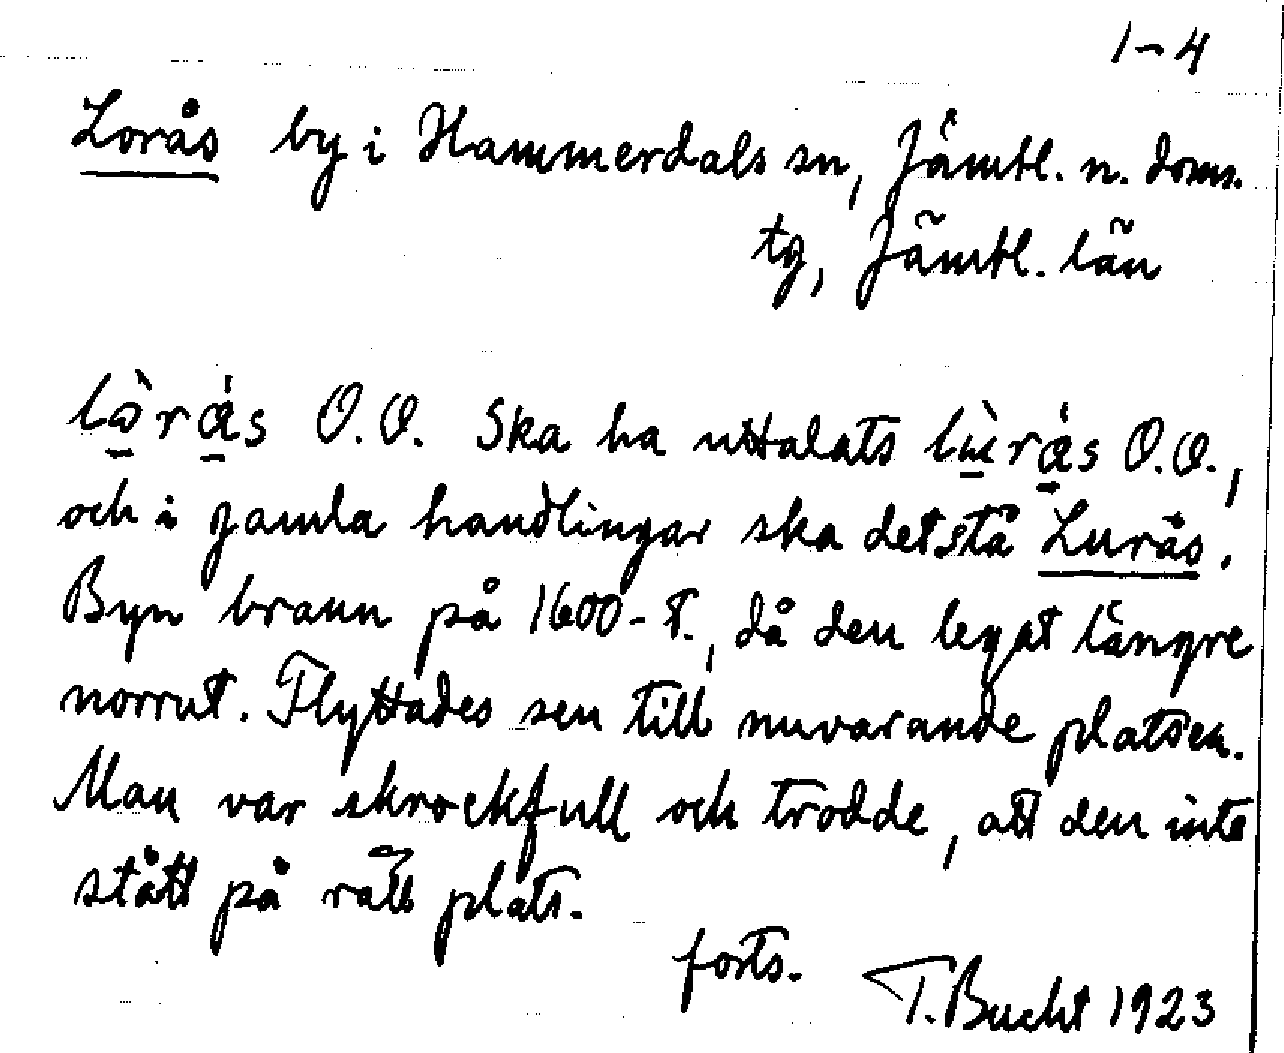 1-4
Lorås by i Hammerdals sn, Jämtl. n. doms.
tg, Jämtl. län
lò̱rá̱s O.O. Ska ha uttalats lùrá̱s O.O.,
och i gamla handlingar ska det stå Lurås.
Byn brann på 1600-t., då den legat längre
norrut. Flyttades sen till nuvarande platsen.
Man var skrockfull och trodde, att den inte
stått på rätt plats.
forts. T. Bucht 1923